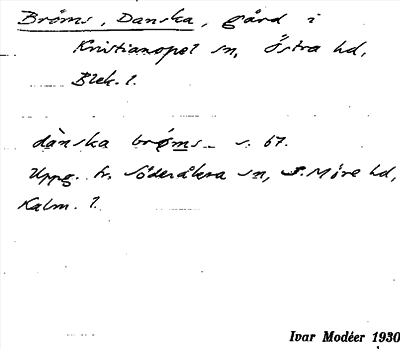 Bröms, Danska, gård i
Kristianopel sn, Östra hd,
Blek. l.
dànska brøms s. 67.
Uppg. fr. Söderåkra sn, S. Möre hd,
Kalm. l.
Ivar Modéer 1930